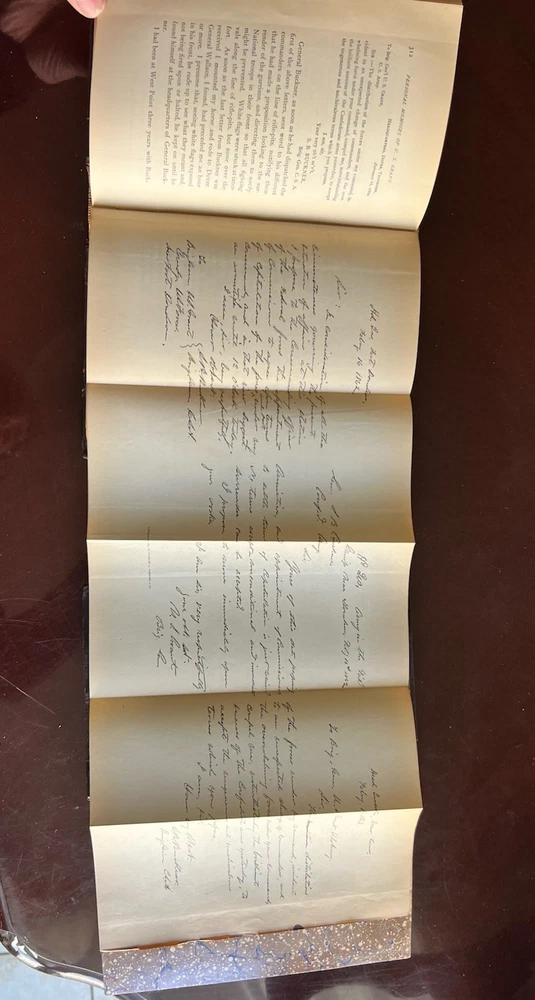 312 PERSONAL MEMOIRS OF U. S. GRANT
To Brig. Gen'l U. S. GRANT,
U. S. Army.
SIR:—The distribution of the forces under my command,
incident to an unexpected change of commanders, and the over-
whelming force under your command, compel me, notwithstanding
the brilliant success of the Confederate arms yesterday, to accept
the ungenerous and unchivalrous terms which you propose.
I am, sir,
Your very ob't se'v't,
S. B. BUCKNER,
Brig. Gen. C. S. A.
General Buckner, as soon as he had dispatched the
first of the above letters, sent word to his different
commanders on the line of rifle-pits, notifying them
that he had made a proposition looking to the sur-
render of the garrison, and directing them to notify
National troops in their front so that all fighting
might be prevented. White flags were stuck at inter-
vals along the line of rifle-pits, but none over the
fort. As soon as the last letter from Buckner was
received I mounted my horse and rode to Dover.
General Wallace, I found, had preceded me an hour
or more. I presume that, seeing white flags exposed
in his front, he rode up to see what they meant and
not being fired upon or halted, he kept on until he
found himself at the headquarters of General Buck-
ner.
I had been at West Point three years with Buck-
Hd Qrs Fort Donelson,
Feby 16 1862
Sir:
In consideration of all the
circumstances governing the present
situation of affairs at this station
I propose to the Commanding officer
of the Federal forces the appointment
of Commissioners to agree upon terms
of capitulation of the forces under my
command, and in that view suggest
an armistice until 12 o'clock today.
I am, sir, very respectfully
Your obt
S B Buckner
Brig Gen C S A
To
Brig Gen U S Grant
Comdg U S Forces
Near Fort Donelson.
Hd Qrs, Army in the Field
Camp Near Donelson, Feby 16th 1862
Gen. S. B. Buckner,
Confed. Army,
Sir:
Yours of this date proposing
Armistice, and appointment of Commissioners
to settle terms of Capitulation is just received.
No terms except unconditional and immediate
surrender can be accepted.
I propose to move immediately upon
your works.
I am sir, very respectfully
your obt. svt.
U. S. Grant
Brig. Gen.
To Brig. Gen. U. S. Grant
Sir:
The distribution
of the forces under my command, incident
to an unexpected change of commanders, and
the overwhelming force under your command,
compel me, notwithstanding the brilliant
success of the Confederate arms yesterday, to
accept the ungenerous and unchivalrous
terms which you propose.
I am, sir,